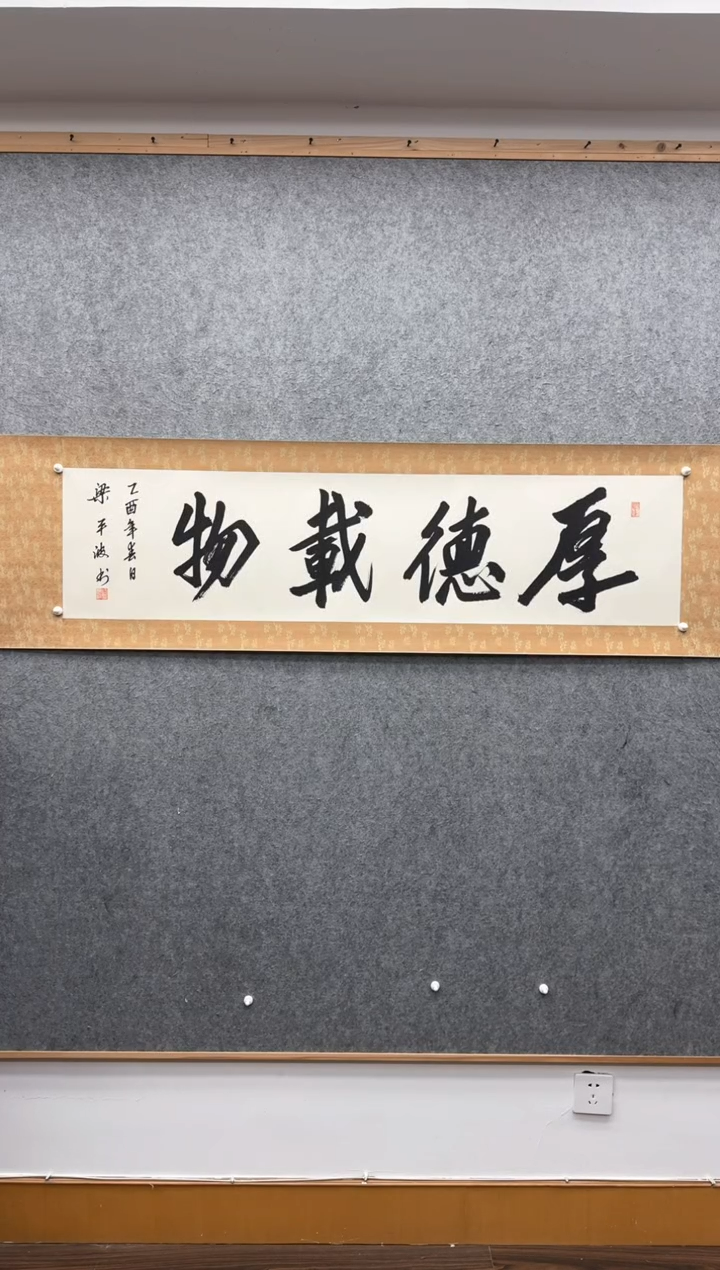 厚德載物
乙酉年春日
梁平波书